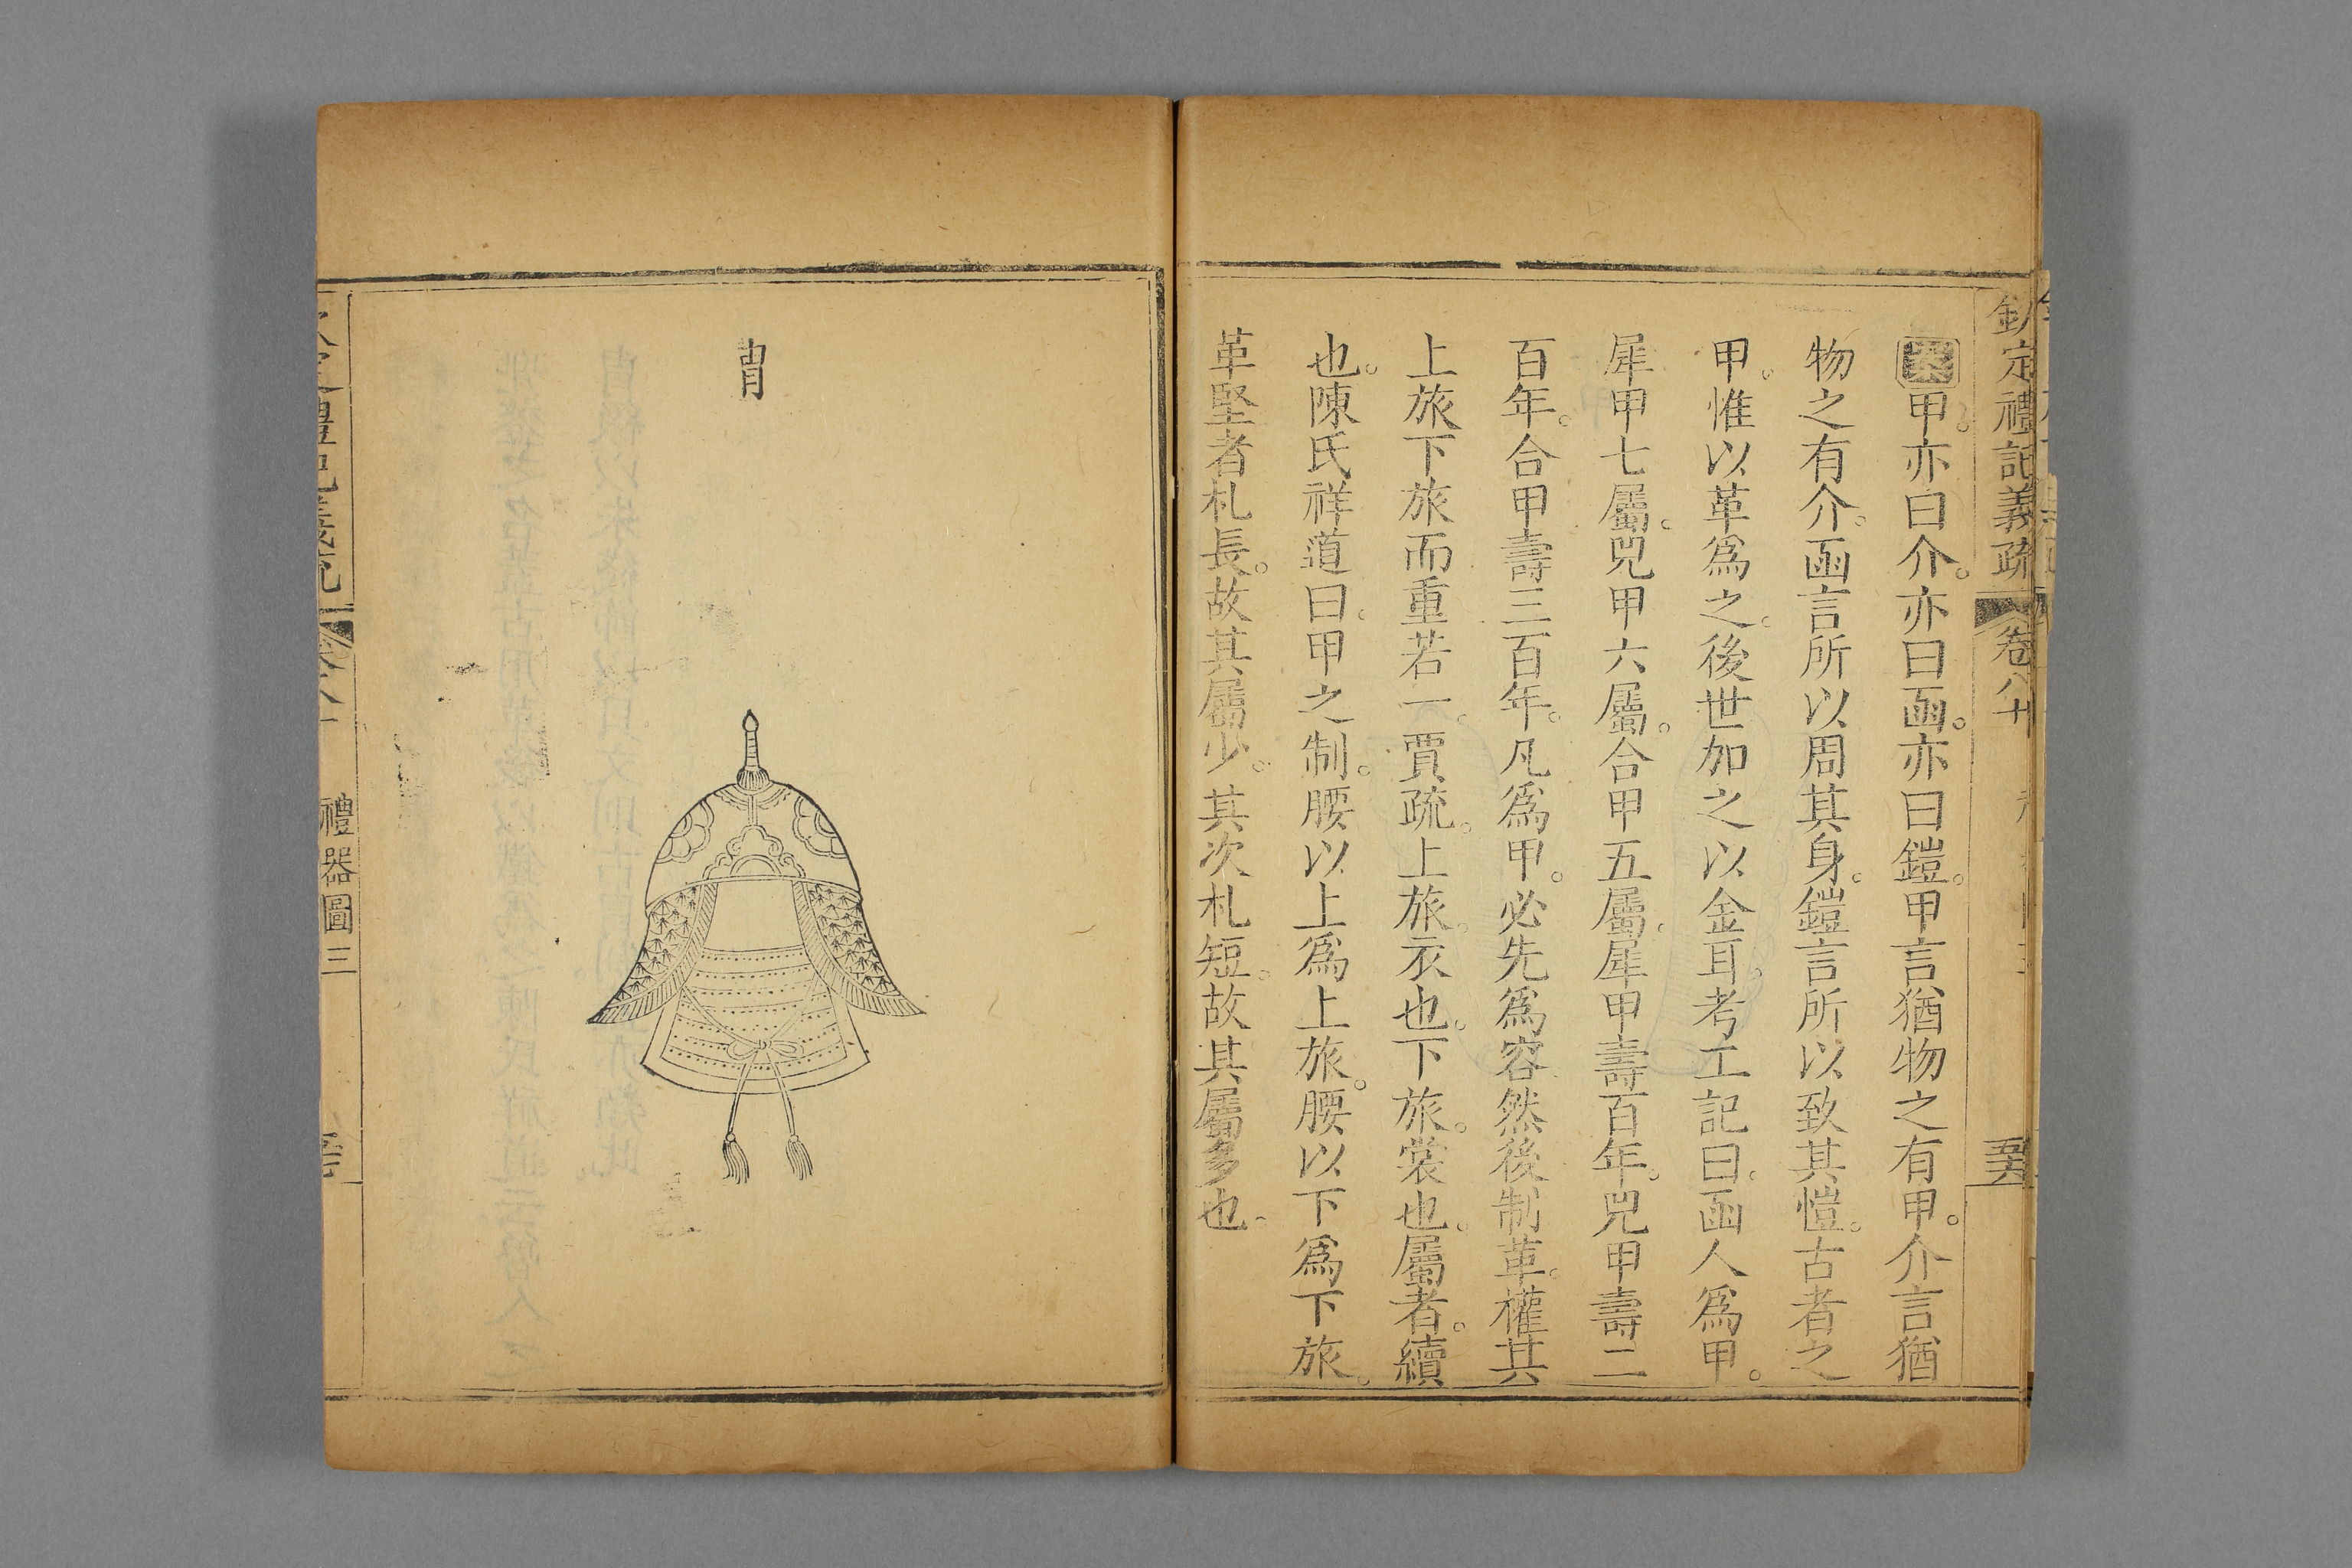 欽定禮記義疏 卷八十
案甲亦曰介。亦曰函。亦曰鎧。甲言猶物之有甲。介言猶
物之有介。函言所以周其身。鎧言所以致其愷。古者之
甲。惟以革爲之。後世加之以金耳。考工記曰。函人爲甲。
犀甲七屬。兕甲六屬。合甲五屬。犀甲壽百年。兕甲壽二
百年。合甲壽三百年。凡爲甲。必先爲容然後制革。權其
上旅下旅而重若一。賈疏。上旅。衣也。下旅。裳也。屬者。續
也。陳氏祥道曰。甲之制。腰以上爲上旅。腰以下爲下旅。
革堅者札長。故其屬少。其次札短。故其屬多也。
胄
禮器圖三